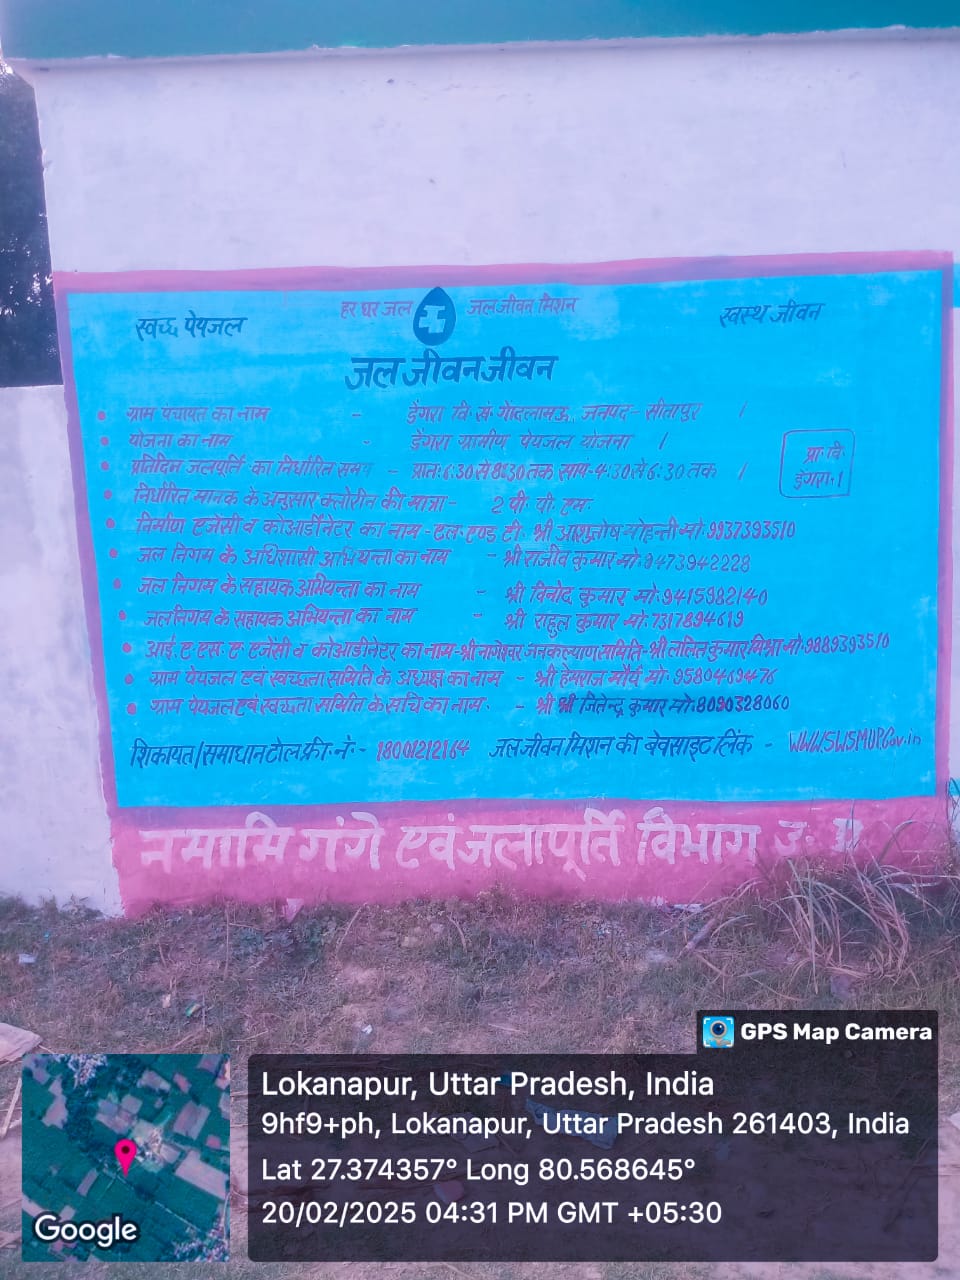 हर घर जल जल जीवन मिशन
स्वच्छ पेयजल
स्वस्थ जीवन
जल जीवन जीवन
• ग्राम पंचायत का नाम - डेंगरा वि. सं. गोंदलामऊ, जनपद- सीतापुर ।
• योजना का नाम - डेंगरा ग्रामीण पेयजल योजना ।
• प्रतिदिन जलपूर्ति का निर्धारित समय - प्रातः 6:30 से 8:30 तक सायं- 4:30 से 6:30 तक ।
प्रा. वि.
डेंगरा-1
• निर्धारित मानक के अनुसार क्लोरीन की मात्रा - 2 पी. पी. एम.
• निर्माण एजेंसी व कोआर्डीनेटर का नाम - एल. एण्ड टी. श्री आशुतोष मोहन्ती मो. 9937393510
• जल निगम के अधिशासी अभियन्ता का नाम - श्री राजीव कुमार मो. 9473942228
• जल निगम के सहायक अभियन्ता का नाम - श्री विनोद कुमार मो. 9415982140
• जल निगम के सहायक अभियन्ता का नाम - श्री राहुल कुमार मो. 7317894619
• आई. ए. एस. ए. एजेंसी व कोआर्डीनेटर का नाम - श्री नागेश्वर जनकल्याण समिति - श्री ललित कुमार मिश्रा मो. 9889393510
• ग्राम पेयजल एवं स्वच्छता समिति के अध्यक्ष का नाम - श्री हेमराज मौर्य मो. 9580469476
• ग्राम पेयजल एवं स्वच्छता समिति के सचि का नाम. - श्री श्री जितेन्द्र कुमार मो. 8090328060
शिकायत/समाधान टोल फ्री नं. - 18001212164 जल जीवन मिशन की बेवसाइट लिंक - WWW.SWSMUP.Gov.in
नमामि गंगे एवं जलापूर्ति विभाग उ. प्र.
GPS Map Camera
Lokanapur, Uttar Pradesh, India
9hf9+ph, Lokanapur, Uttar Pradesh 261403, India
Lat 27.374357° Long 80.568645°
20/02/2025 04:31 PM GMT +05:30
Google